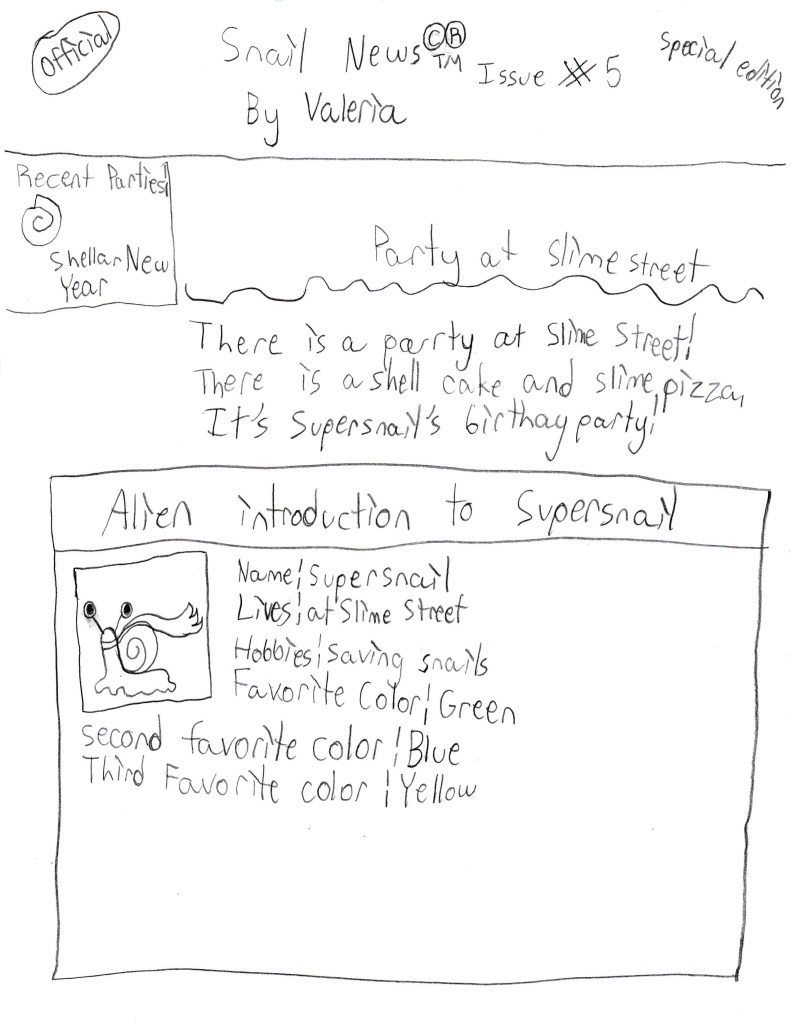 Official
Snail News ©®™
Issue # 5
Special edition
By Valeria
Recent Parties!
Shellar New
Year
Party at Slime street
There is a parrty at Slime Street!
There is a shell cake and slime pizza,
It's Supersnail's birthay party!
Alien introduction to Supersnail
Name¦Supersnail
Lives¦at Slime Street
Hobbies¦saving snails
Favorite Color¦Green
second favorite color¦Blue
Third Favorite color¦Yellow